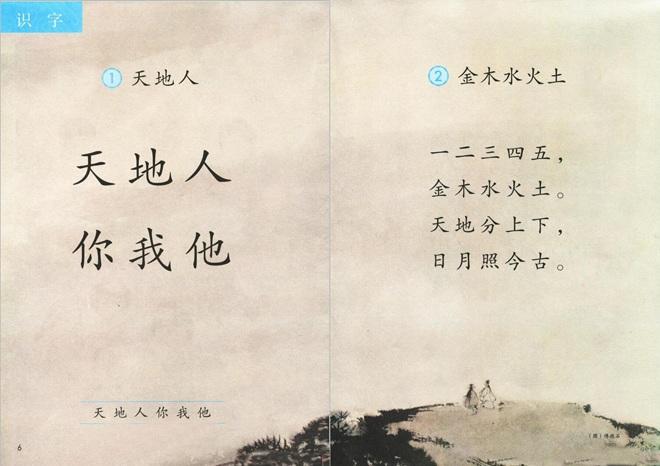 识字
① 天地人
天地人
你我他
天地人你我他
6
② 金木水火土
一二三四五，
金木水火土。
天地分上下，
日月照今古。
（图）傅抱石